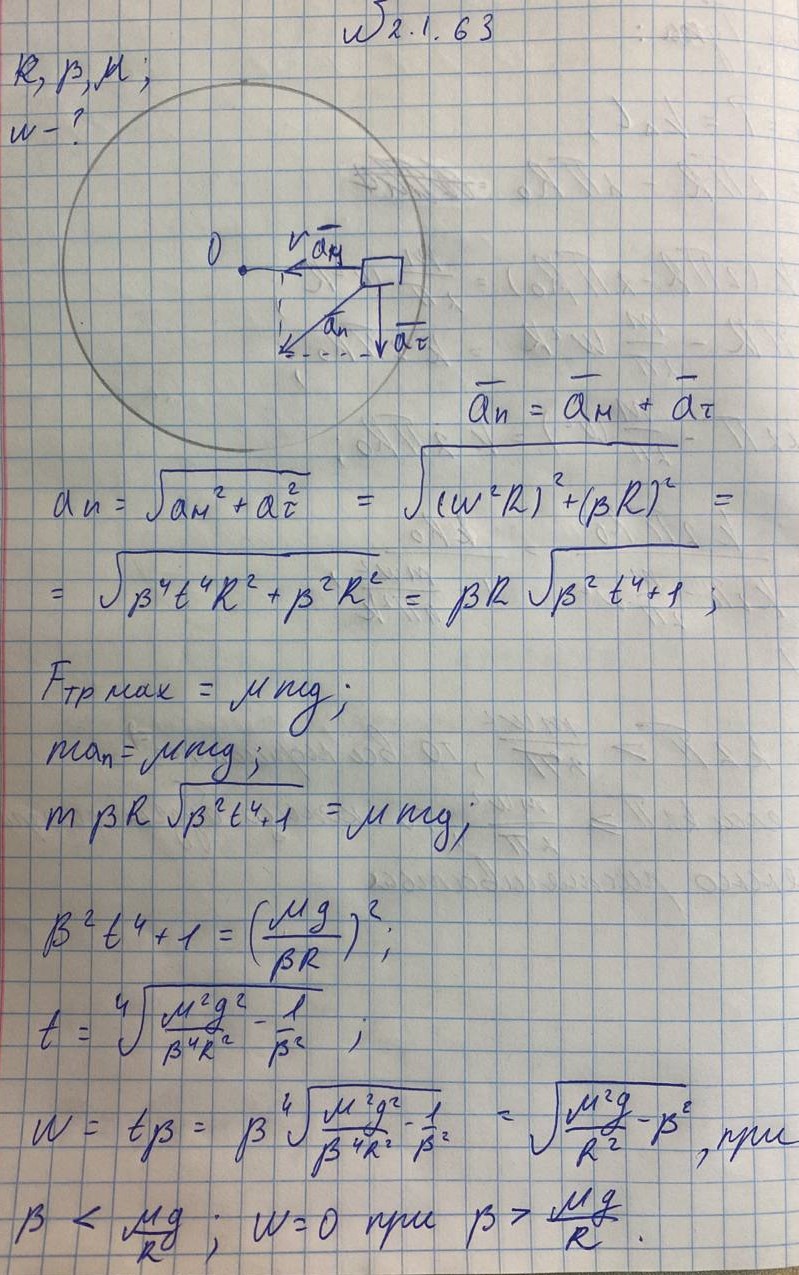 №2.1.63
R, β, μ;
ω - ?
O r a̅н
a̅п a̅τ
a̅п = a̅н + a̅τ
aп = √(aн² + aτ²) = √((ω²R)² + (βR)²) =
= √(β⁴t⁴R² + β²R²) = βR √(β²t⁴+1) ;
Fтр мах = μmg;
maп = μmg;
m βR √(β²t⁴+1) = μmg;
β²t⁴ + 1 = (μg/βR)²;
t = ⁴√(μ²g²/β⁴R² - 1/β²) ;
ω = tβ = β ⁴√(μ²g²/β⁴R² - 1/β²) = √(μ²g/R² - β²) , при
β < μg/R ; ω=0 при β > μg/R .